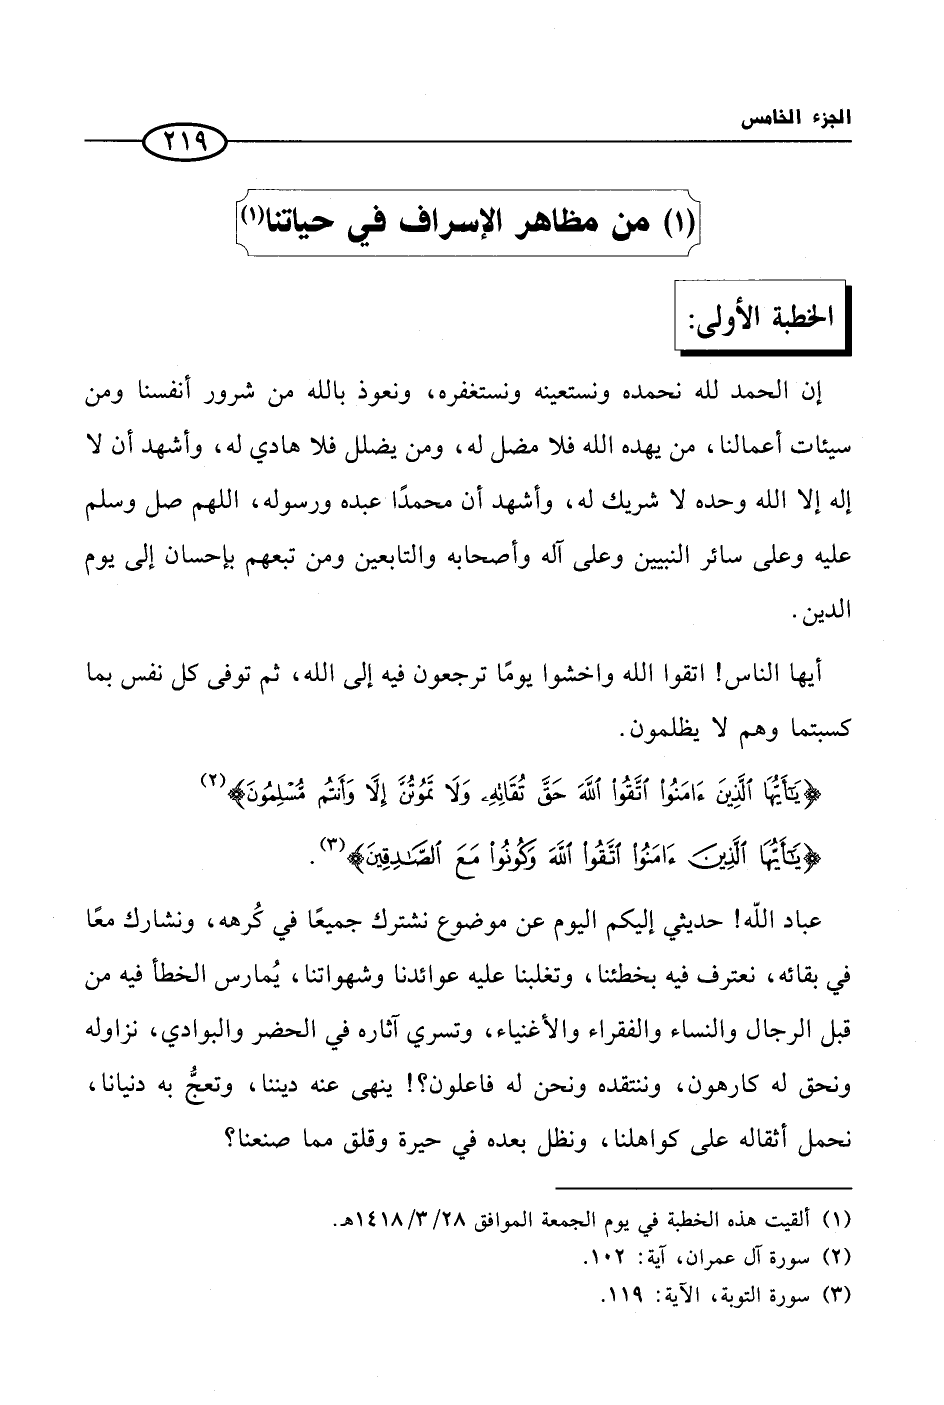 الجزء الخامس
٢١٩
(١) من مظاهر الإسراف في حياتنا(١)
الخطبة الأولى:
إن الحمد لله نحمده ونستعينه ونستغفره، ونعوذ بالله من شرور أنفسنا ومن
سيئات أعمالنا، من يهده الله فلا مضل له، ومن يضلل فلا هادي له، وأشهد أن لا
إله إلا الله وحده لا شريك له، وأشهد أن محمدًا عبده ورسوله، اللهم صل وسلم
عليه وعلى سائر النبيين وعلى آله وأصحابه والتابعين ومن تبعهم بإحسان إلى يوم
الدين.
أيها الناس! اتقوا الله واخشوا يومًا ترجعون فيه إلى الله، ثم توفى كل نفس بما
كسبتما وهم لا يظلمون.
﴿يَٰٓأَيُّهَا ٱلَّذِينَ ءَامَنُوا۟ ٱتَّقُوا۟ ٱللَّهَ حَقَّ تُقَاتِهِۦ وَلَا تَمُوتُنَّ إِلَّا وَأَنتُم مُّسْلِمُونَ﴾(٢)
﴿يَٰٓأَيُّهَا ٱلَّذِينَ ءَامَنُوا۟ ٱتَّقُوا۟ ٱللَّهَ وَكُونُوا۟ مَعَ ٱلصَّٰدِقِينَ﴾(٣).
عباد الله! حديثي إليكم اليوم عن موضوع نشترك جميعًا في كُرهه، ونشارك معًا
في بقائه، نعترف فيه بخطئنا، وتغلبنا عليه عوائدنا وشهواتنا، يُمارس الخطأ فيه من
قبل الرجال والنساء والفقراء والأغنياء، وتسري آثاره في الحضر والبوادي، نزاوله
ونحق له كارهون، وننتقده ونحن له فاعلون؟! ينهى عنه ديننا، وتعجُّ به دنيانا،
نحمل أثقاله على كواهلنا، ونظل بعده في حيرة وقلق مما صنعنا؟
(١) ألقيت هذه الخطبة في يوم الجمعة الموافق ٢٨/ ٣/ ١٤١٨هـ.
(٢) سورة آل عمران، آية: ١٠٢.
(٣) سورة التوبة، الآية: ١١٩.